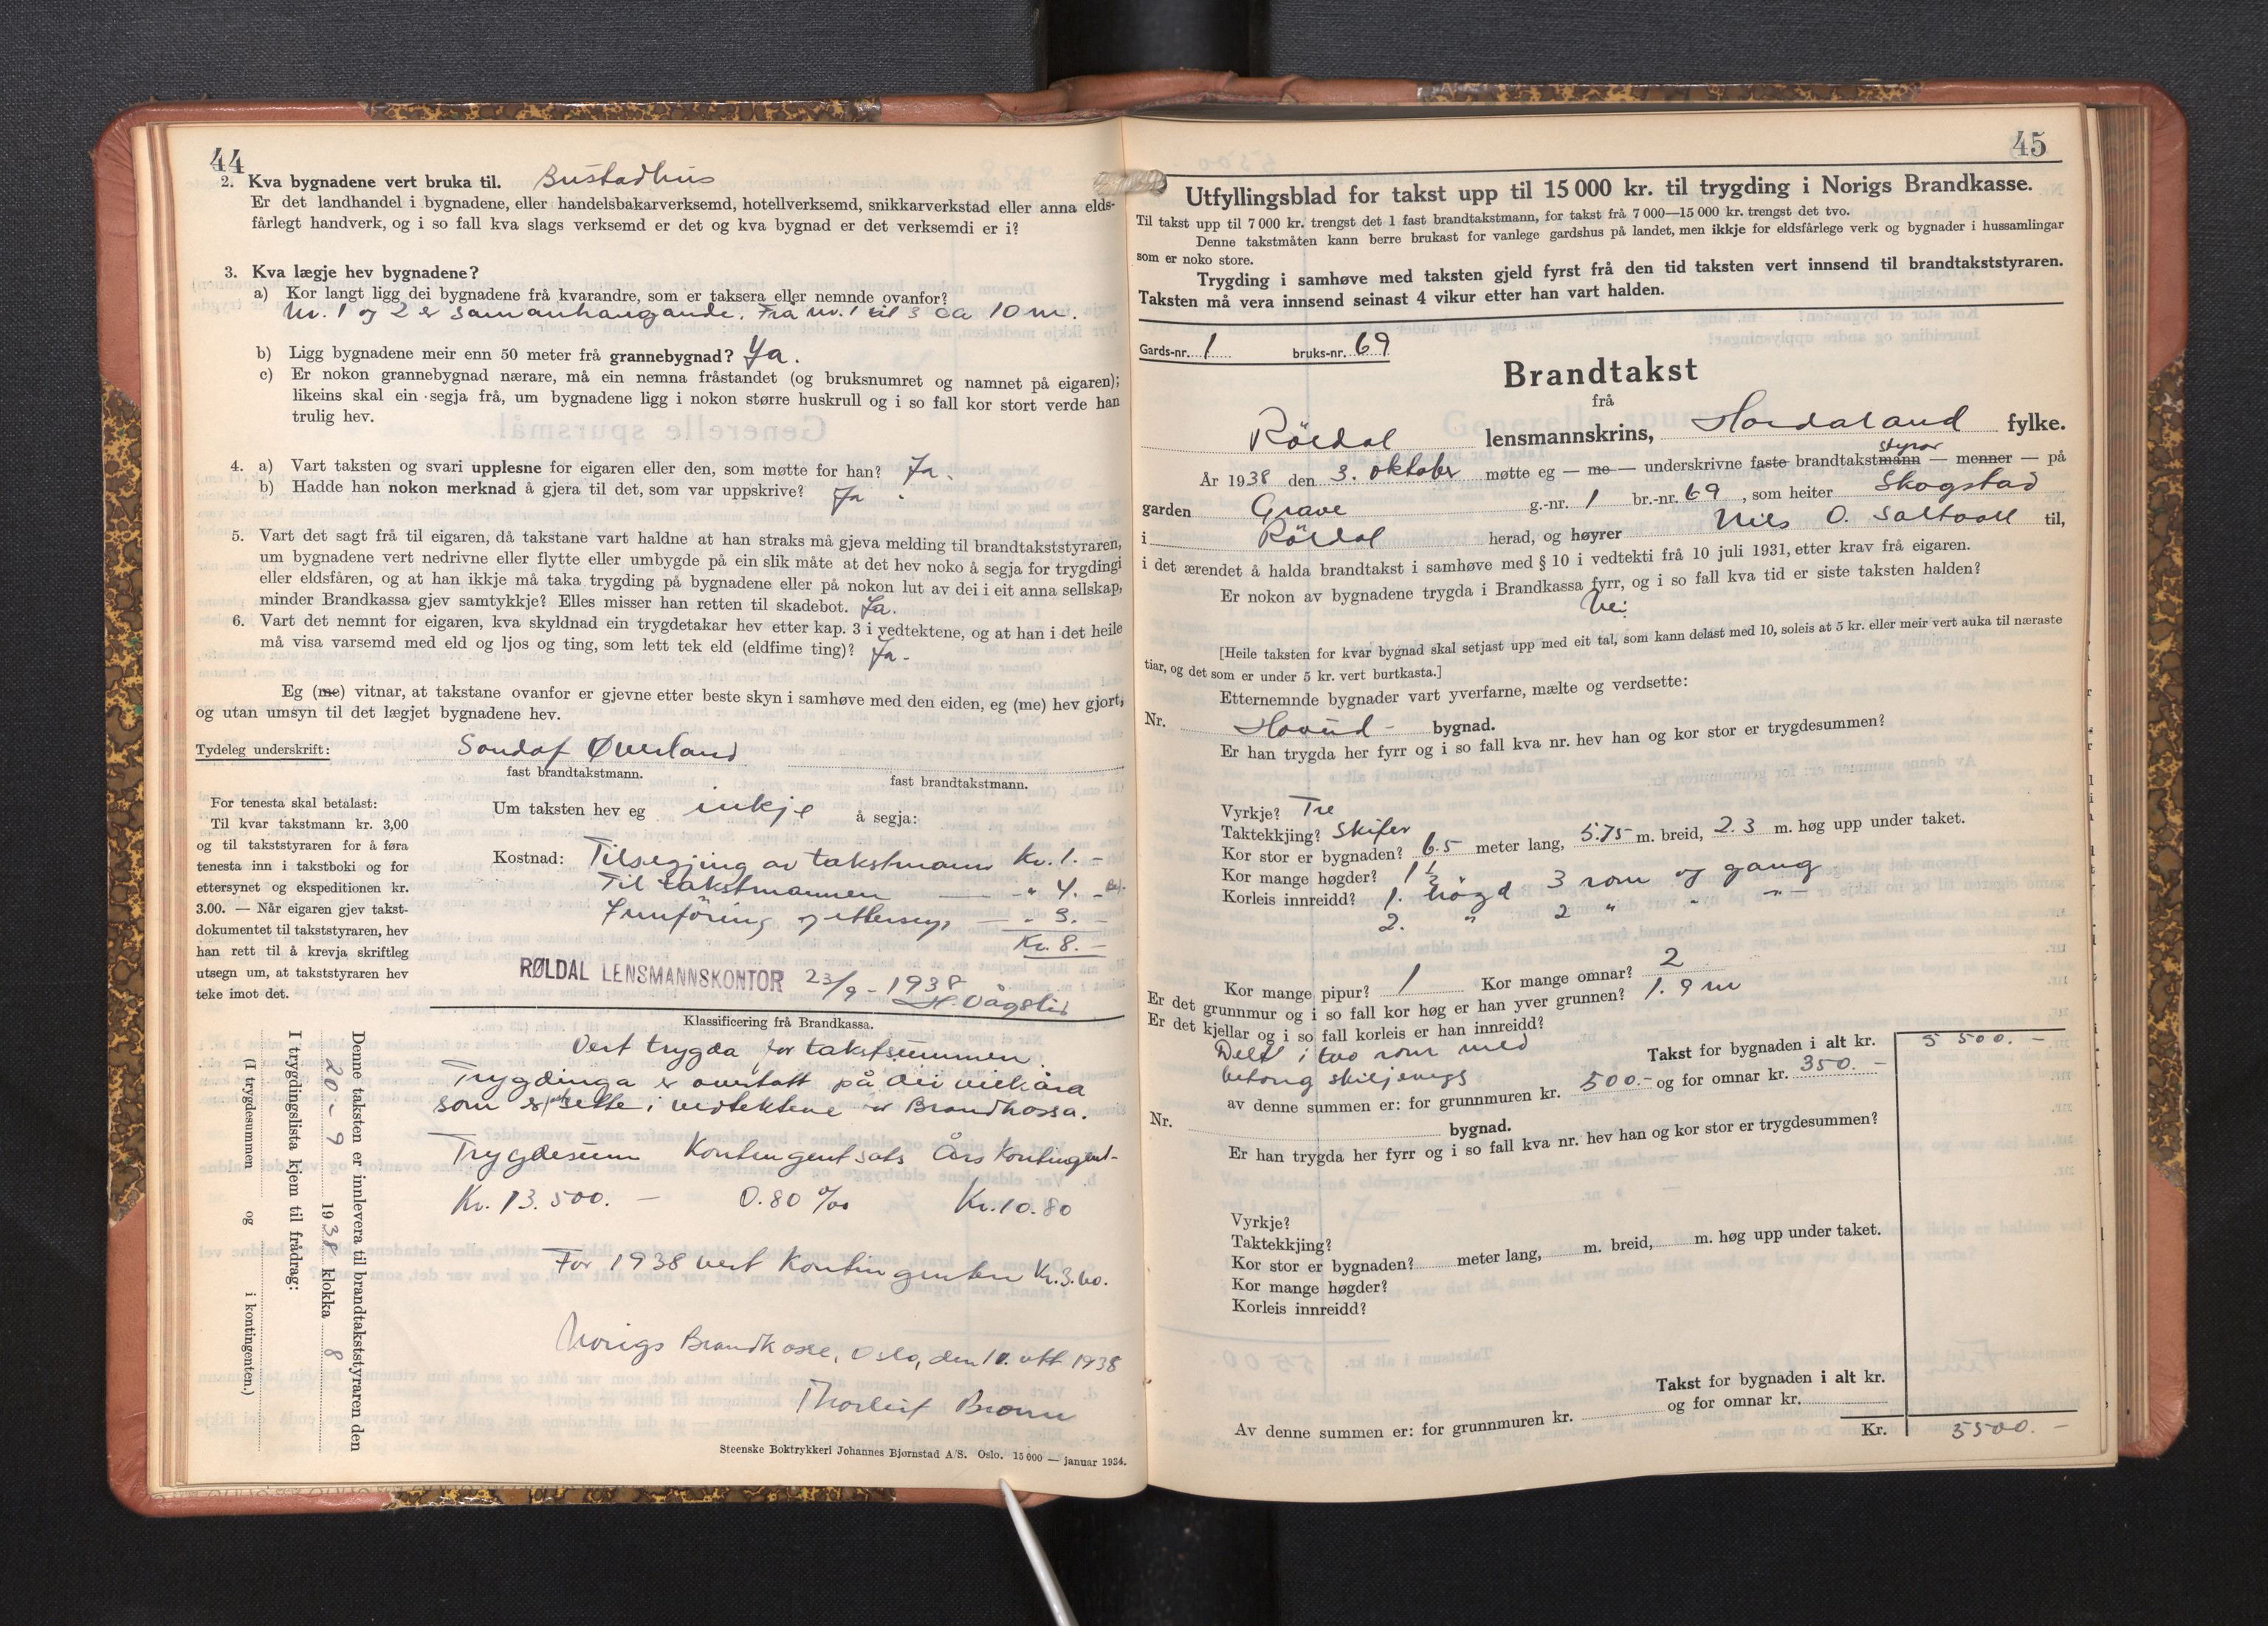 44
2. Kva bygnadene vert bruka til. Bustadhus
Er det landhandel i bygnadene, eller handelsbakarverksemd, hotellverksemd, snikkarverkstad eller anna elds-
fårlegt handverk, og i so fall kva slags verksemd er det og kva bygnad er det verksemdi er i?
3. Kva lægje hev bygnadene?
a) Kor langt ligg dei bygnadene frå kvarandre, som er taksera eller nemnde ovanfor?
Nr. 1 og 2 er samanhangande. Frå nr. 1 til 3 ca 10 m.
b) Ligg bygnadene meir enn 50 meter frå grannebygnad? Ja.
c) Er nokon grannebygnad nærare, må ein nemna fråstandet (og bruksnumret og namnet på eigaren);
likeins skal ein segja frå, um bygnadene ligg i nokon større huskrull og i so fall kor stort verde han
trulig hev.
4. a) Vart taksten og svari upplesne for eigaren eller den, som møtte for han? Ja.
b) Hadde han nokon merknad å gjera til det, som var uppskrive? Ja.
5. Vart det sagt frå til eigaren, då takstane vart haldne at han straks må gjeva melding til brandtakststyraren,
um bygnadene vert nedrivne eller flytte eller umbygde på ein slik måte at det hev noko å segja for trygdingi
eller eldsfåren, og at han ikkje må taka trygding på bygnadene eller på nokon lut av dei i eit anna sellskap,
minder Brandkassa gjev samtykkje? Elles misser han retten til skadebot. Ja.
6. Vart det nemnt for eigaren, kva skyldnad ein trygdetakar hev etter kap. 3 i vedtektene, og at han i det heile
må visa varsemd med eld og ljos og ting, som lett tek eld (eldfime ting)? Ja.
Eg (me) vitnar, at takstane ovanfor er gjevne etter beste skyn i samhøve med den eiden, eg (me) hev gjort,
og utan umsyn til det lægjet bygnadene hev.
Tydeleg underskrift: Sondof Øverland
fast brandtakstmann. fast brandtakstmann.
Um taksten hev eg inkje å segja:
For tenesta skal betalast:
Til kvar takstmann kr. 3,00
og til takststyraren for å føra
tenesta inn i takstboki og for
ettersynet og ekspeditionen kr.
3.00. — Når eigaren gjev takst-
dokumentet til takststyraren, hev
han rett til å krevja skriftleg
utsegn um, at takststyraren hev
teke imot det.
Kostnad: Tilsegjing av takstmann Kr. 1.-
Til takstmannen — " 4.-
Innføring og ettersyn — " 3.-
Kr. 8.-
RØLDAL LENSMANNSKONTOR 23/9 - 1938
H. Vågslid
Klassificering frå Brandkassa.
Vert trygda for takstsummen
Trygdinga er overtatt på dei vilkåra
som er sette i vedtektene Brandkassa.
Trygdesum Kontingentsats Års Kontingent-
Kr. 13.500.- 0.80 ‰ Kr. 10.80
For 1938 vert Kontingenten Kr. 3.60.
Norigs Brandkasse, Oslo, den 11. okt 1938
Thorleif Broum
Denne taksten er innlevera til brandtakststyraren den
20 - 9 1938 klokka 8
I trygdingslista kjem til frådrag:
(I trygdesummen og i kontingenten.)
Steenske Boktrykkeri Johannes Bjørnstad A/S. Oslo. 15 000 — januar 1934.
45
Utfyllingsblad for takst upp til 15 000 kr. til trygding i Norigs Brandkasse.
Til takst upp til 7 000 kr. trengst det 1 fast brandtakstmann, for takst frå 7 000—15 000 kr. trengst det tvo.
Denne takstmåten kann berre brukast for vanlege gardshus på landet, men ikkje for eldsfårlege verk og bygnader i hussamlingar
som er noko store.
Trygding i samhøve med taksten gjeld fyrst frå den tid taksten vert innsend til brandtakststyraren.
Taksten må vera innsend seinast 4 vikur etter han vart halden.
Gards-nr. 1 bruks-nr. 69
Brandtakst
frå
Röldal lensmannskrins, Hordaland fylke.
År 1938 den 3. oktober møtte eg — me — underskrivne faste brandtakstmann styrar — menner — på
garden Grave g.-nr. 1 br.-nr. 69, som heiter Skogstad
i Röldal herad, og høyrer Nils O. Saltvoll til,
i det ærendet å halda brandtakst i samhøve med § 10 i vedtekti frå 10 juli 1931, etter krav frå eigaren.
Er nokon av bygnadene trygda i Brandkassa fyrr, og i so fall kva tid er siste taksten halden?
Nei
[Heile taksten for kvar bygnad skal setjast upp med eit tal, som kann delast med 10, soleis at 5 kr. eller meir vert auka til næraste
tiar, og det som er under 5 kr. vert burtkasta.]
Etternemnde bygnader vart yverfarne, mælte og verdsette:
Nr. Hovud- bygnad.
Er han trygda her fyrr og i so fall kva nr. hev han og kor stor er trygdesummen?
Vyrkje? Tre
Taktekkjing? Skifer
Kor stor er bygnaden? 6.5 meter lang, 5.75 m. breid, 2.3 m. høg upp under taket.
Kor mange høgder? 1 ½
Korleis innreidd? 1. högd 3 rom og gang
2. " 2 " - " -
Kor mange pipur? 1 Kor mange omnar? 2
Er det grunnmur og i so fall kor høg er han yver grunnen? 1.9 m
Er det kjellar og i so fall korleis er han innreidd?
Delt i tvo rom med
betong skiljevegg
Takst for bygnaden i alt kr. 5 500.-
av denne summen er: for grunnmuren kr. 500.- og for omnar kr. 350.-
Nr. bygnad.
Er han trygda her fyrr og i so fall kva nr. hev han og kor stor er trygdesummen?
Vyrkje?
Taktekkjing?
Kor stor er bygnaden? meter lang, m. breid, m. høg upp under taket.
Kor mange høgder?
Korleis innreidd?
Takst for bygnaden i alt kr.
Av denne summen er: for grunnmuren kr. og for omnar kr.
Kr. 5500.-